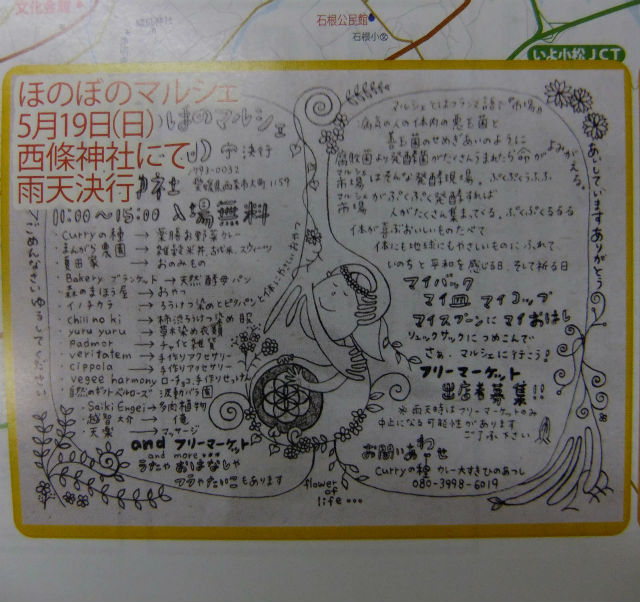 文化会館
石根公民館
石根小
いよ小松JCT
ほのぼのマルシェ
5月19日(日)
西條神社にて
雨天決行
ほのマルシェ
決行
793-0032
愛媛県西条市大町1159
11:00〜15:00 入場無料
・Curryの種 → 薬膳お野菜カレー
・まんがら農園 → 雑穀米丼、お米、スウィーツ
・夏田家 → おのみもの
・Bakery ブランケット → 天然酵母パン
・森のまほう屋 → おやつ
・イノチカラ → ろうけつ染めとピタパン
・chill no ki → 柿渋ろうけつ染め服
・yuru yuru → 草木染め衣類
・padmor → チャイ雑貨
・veritatem → 手作りアクセサリー
・cippola → 手作りアクセサリー
・vegee harmony ローチョコ、手作りせっけん
・自然のギフトベルローズ 波動バラ園
・Saiki Engei → 多肉植物
・越智大介 → 俺
・天楽 → マッサージ
and フリーマーケット
and more...
うたや おはなしや
フラやたいこもあります
flower
of
life...
マルシェとはフランス語で「市場」
病気の人の体内の悪玉菌と
善玉菌のせめぎあいのように
腐敗菌より発酵菌がたくさんうまれたら命が
よみがえる。
マルシェ
市場 はそんな発酵現場。ぷくぷくうふふ
マルシェ
市場 がぷくぷく発酵すれば
人がたくさん集まってくる。ぷくぷくるるる
体が喜ぶおいしいものたべて
体にも地球にもやさしいものにふれて
いのちと平和を感じる日、そして祈る日
あいしていますありがとう
マイバック
マイ皿 マイコップ
マイスプーンに マイおはし
リュックサックにつめこんで
さぁ、マルシェに行こう!
フリーマーケット
出店者募集!!
※雨天時はフリーマーケットのみ
中止になる可能性があります
ご了承下さい
お問いあわせ
Curryの種 カレー大すきひのあつし
080-3998-6019